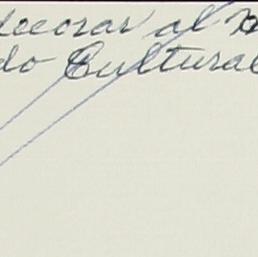 decorar al
do Cultural